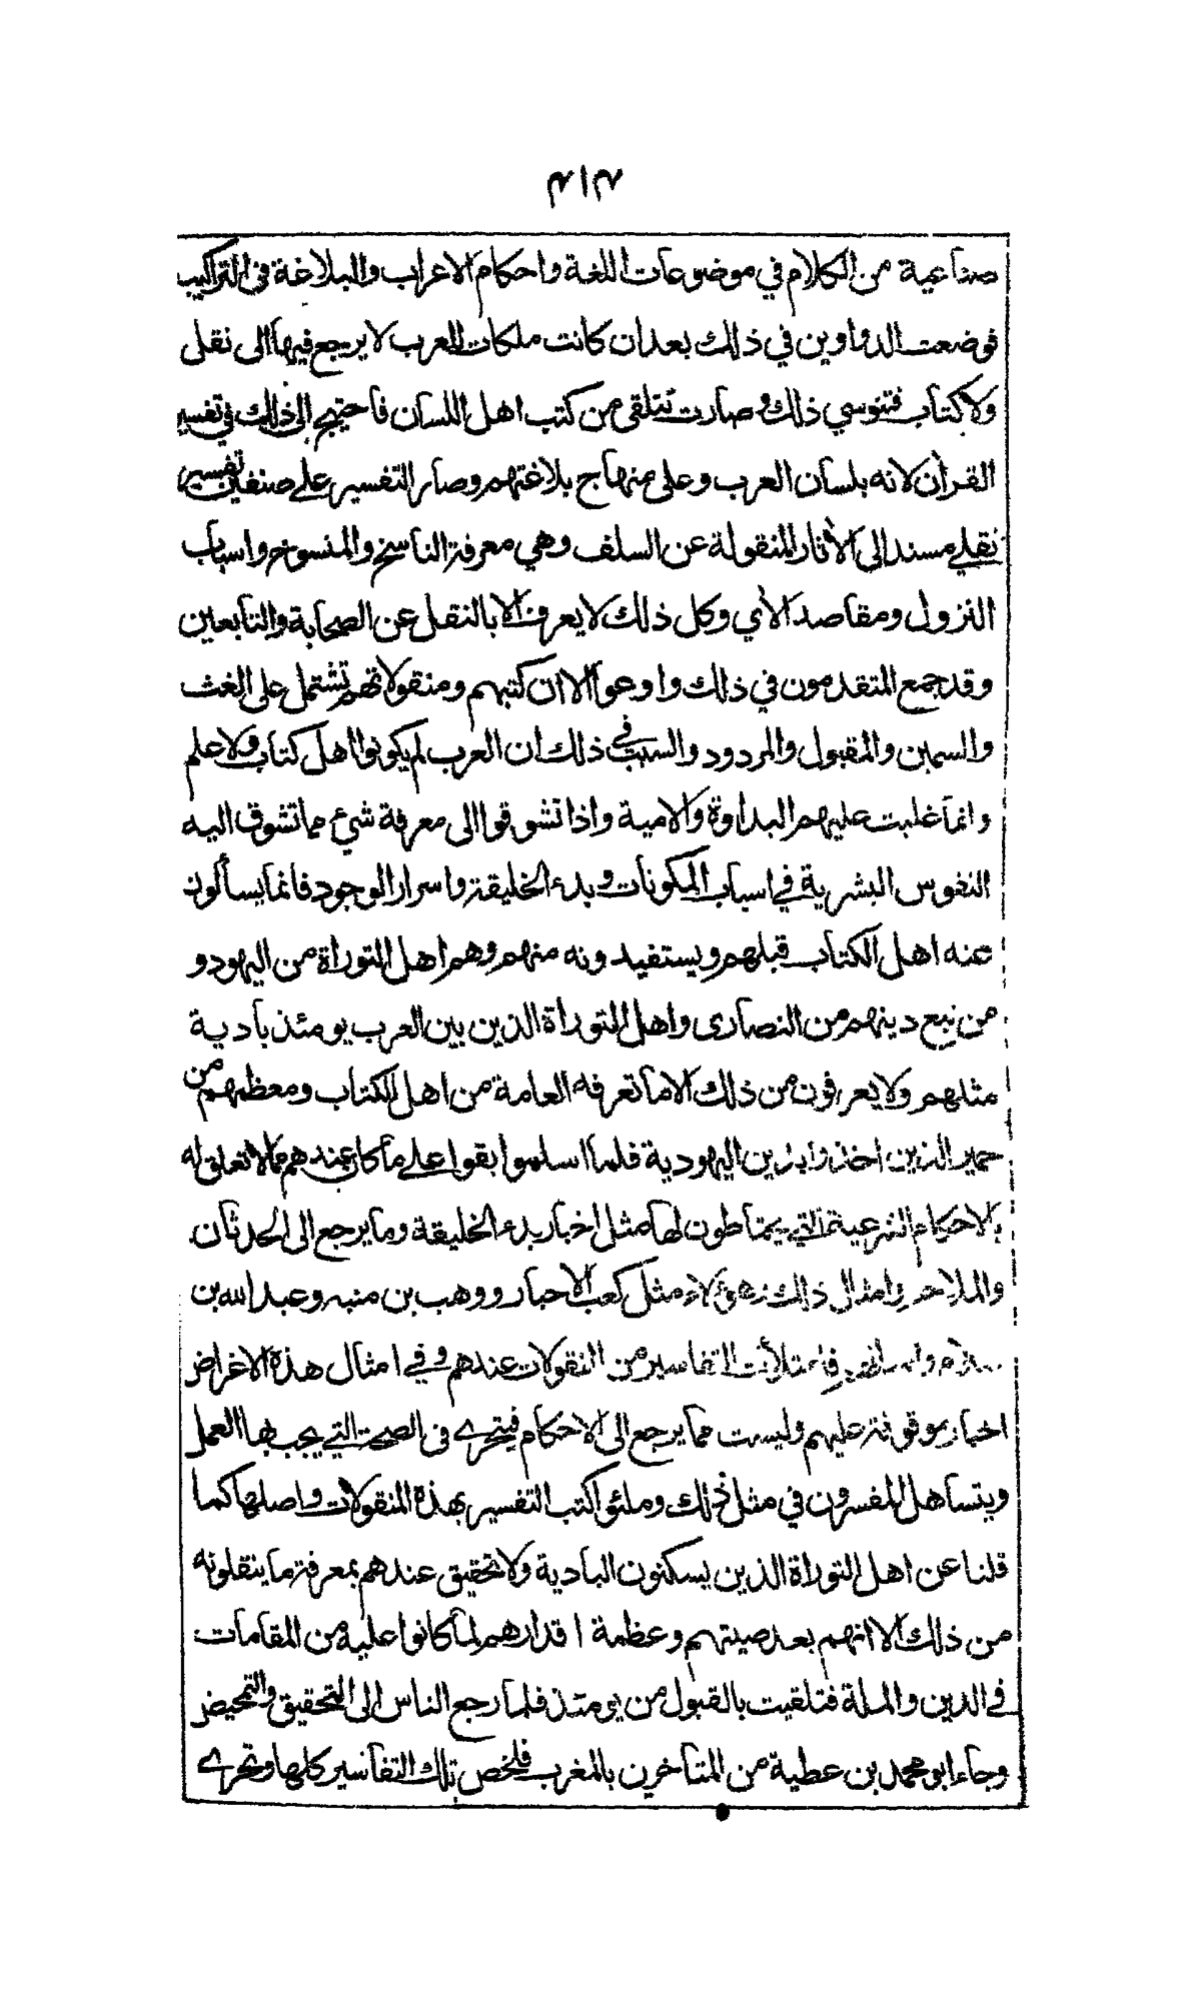 ٣١٣
صناعية من الكلام في موضوعات اللغة واحكام الاعراب والبلاغة في التراكيب
فوضعت الدواوين في ذلك بعد ان كانت ملكات للعرب لا يرجع فيها الى نقل
ولا كتاب فتنوسي ذلك وصارت تتلقى من كتب اهل اللسان فاحتيج الى ذلك في تفسير
القرآن لانه بلسان العرب وعلى منهاج بلاغتهم وصار التفسير على صنفين تفسير
نقلي مسند الى الآثار المنقولة عن السلف وهي معرفة الناسخ والمنسوخ واسباب
النزول ومقاصد الآي وكل ذلك لا يعرف الا بالنقل عن الصحابة والتابعين
وقد جمع المتقدمون في ذلك واوعوا الا ان كتبهم ومنقولاتهم تشتمل على الغث
والسمين والمقبول والمردود والسبب في ذلك ان العرب لم يكونوا اهل كتاب ولا علم
وانما غلبت عليهم البداوة والامية واذا تشوقوا الى معرفة شيء مما تتشوق اليه
النفوس البشرية في اسباب المكونات وبدء الخليقة واسرار الوجود فانما يسألون
عنه اهل الكتاب قبلهم ويستفيدونه منهم وهم اهل التوراة من اليهود و
من تبع دينهم من النصارى واهل التوراة الذين بين العرب يومئذ بادية
مثلهم ولا يعرفون من ذلك الا ما تعرفه العامة من اهل الكتاب ومعظمهم من
حمير الذين اخذوا بدين اليهودية فلما اسلموا بقوا على ما كان عندهم مما لا تعلق له
بالاحكام الشرعية التي يحتاطون لها مثل اخبار بدء الخليقة وما يرجع الى الحدثان
والملاحم وامثال ذلك وهؤلاء مثل كعب الاحبار ووهب بن منبه وعبد الله بن
سلام وامثالهم فامتلأت التفاسير من المنقولات عندهم وفي امثال هذه الاغراض
اخبار موقوفة عليهم وليست مما يرجع الى الاحكام فيتحرى في الصحة التي يجب بها العمل
ويتساهل المفسرون في مثل ذلك وملئوا كتب التفسير بهذه المنقولات واصلها كما
قلنا عن اهل التوراة الذين يسكنون البادية ولا تحقيق عندهم بمعرفة ما ينقلونه
من ذلك الا انهم بعد صيتهم وعظمة اقدارهم لما كانوا عليه من المقامات
في الدين والملة فتلقيت بالقبول من يومئذ فلما رجع الناس الى التحقيق والتمحيض
وجاء ابو محمد بن عطية من المتأخرين بالمغرب فلخص تلك التفاسير كلها وتحرى